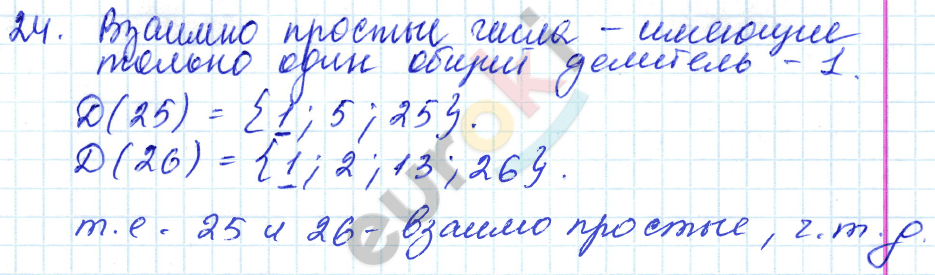 24. Взаимно простые числа - имеющие
только один общий делитель - 1.
Д(25) = {1; 5; 25}.
Д(26) = {1; 2; 13; 26}.
т.е. 25 и 26 - взаимо простые, ч.т.д.
euroki